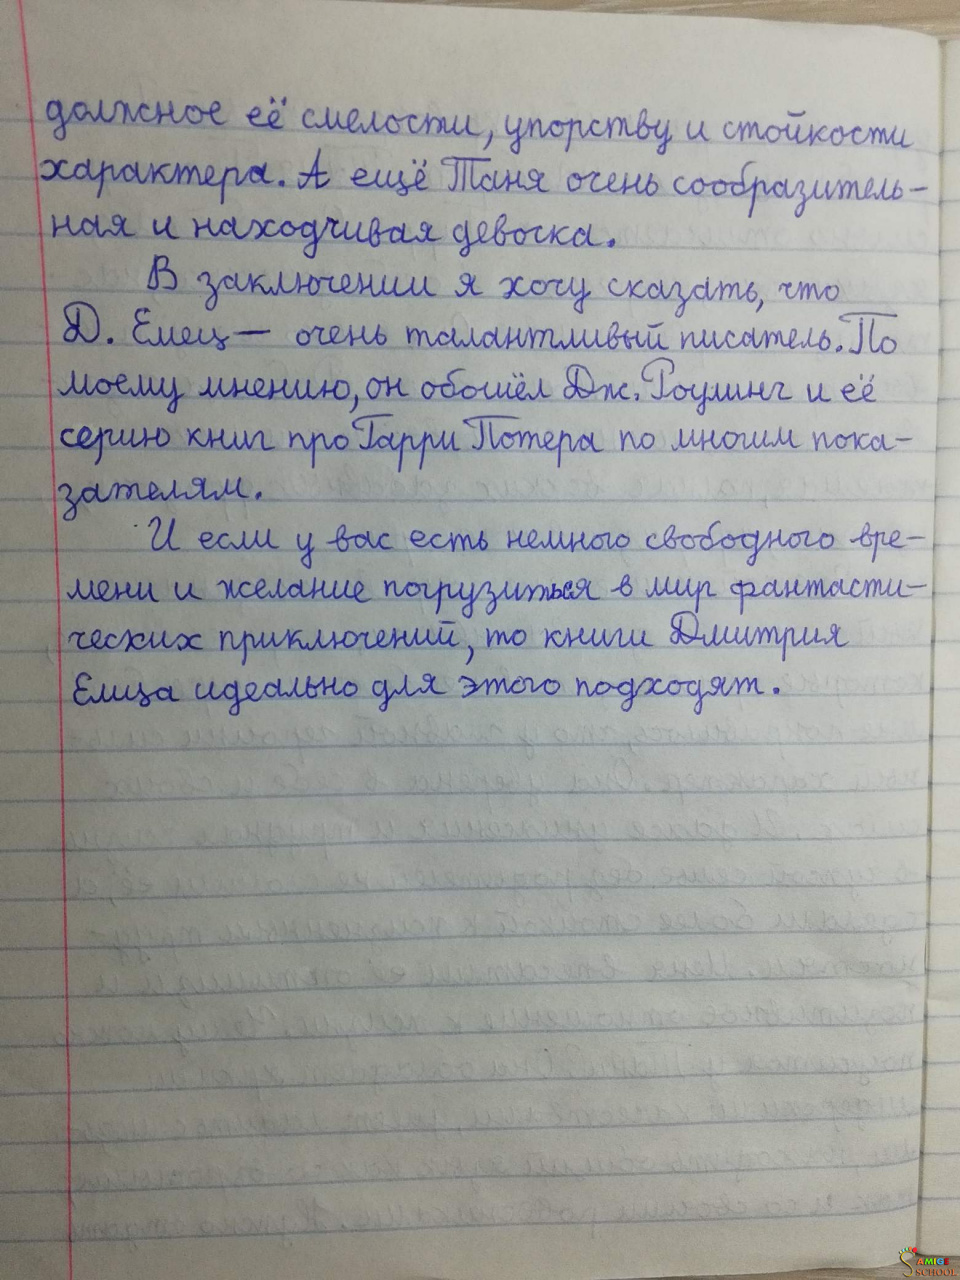 должное её смелости, упорству и стойкости
характера. А ещё Таня очень сообразитель-
ная и находчивая девочка.
В заключении я хочу сказать, что
Д. Емец — очень талантливый писатель. По
моему мнению, он обошёл Дж. Роулинг и её
серию книг про Гарри Потера по многим пока-
зателям.
И если у вас есть немного свободного вре-
мени и желание погрузиться в мир фантасти-
ческих приключений, то книги Дмитрия
Емца идеально для этого подходят.
AMIGO
SCHOOL